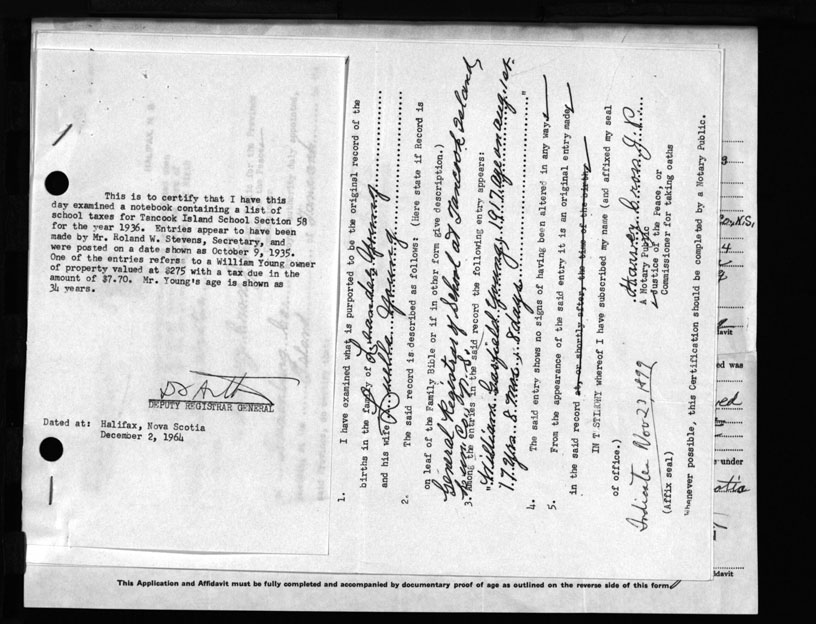 This is to certify that I have this
day examined a notebook containing a list of
school taxes for Tancook Island School Section 58
for the year 1936. Entries appear to have been
made by Mr. Roland W. Stevens, Secretary, and
were posted on a date shown as October 9, 1935.
One of the entries refers to a William Young owner
of property valued at $275 with a tax due in the
amount of $7.70. Mr. Young's age is shown as
34 years.
DEPUTY REGISTRAR GENERAL
Dated at: Halifax, Nova Scotia
December 2, 1964
1. I have examined what is purported to be the original record of the
births in the family of Leander Young
and his wife Luella Young
2. The said record is described as follows: (Here state if Record is
on leaf of the Family Bible or if in other form give description.)
General Register of School at Tancook Island
3. Among the entries in the said record the following entry appears:
"William Garfield Young, 1917, age on Aug. 1st
17 yrs. 8 mos. 8 days"
4. The said entry shows no signs of having been altered in any way.
5. From the appearance of the said entry it is an original entry made
in the said record at, or shortly after, the time of the birth
IN T STIMONY whereof I have subscribed my name (and affixed my seal
of office.)
Harvey Cross J.P.
A Notary Public
Justice of the Peace, or
Commissioner for taking oaths
Indicates Nov 23, 1899
(Affix seal)
Whenever possible, this Certification should be completed by a Notary Public.
N.S.
davit
ed was
under
otia
davit
This Application and Affidavit must be fully completed and accompanied by documentary proof of age as outlined on the reverse side of this form